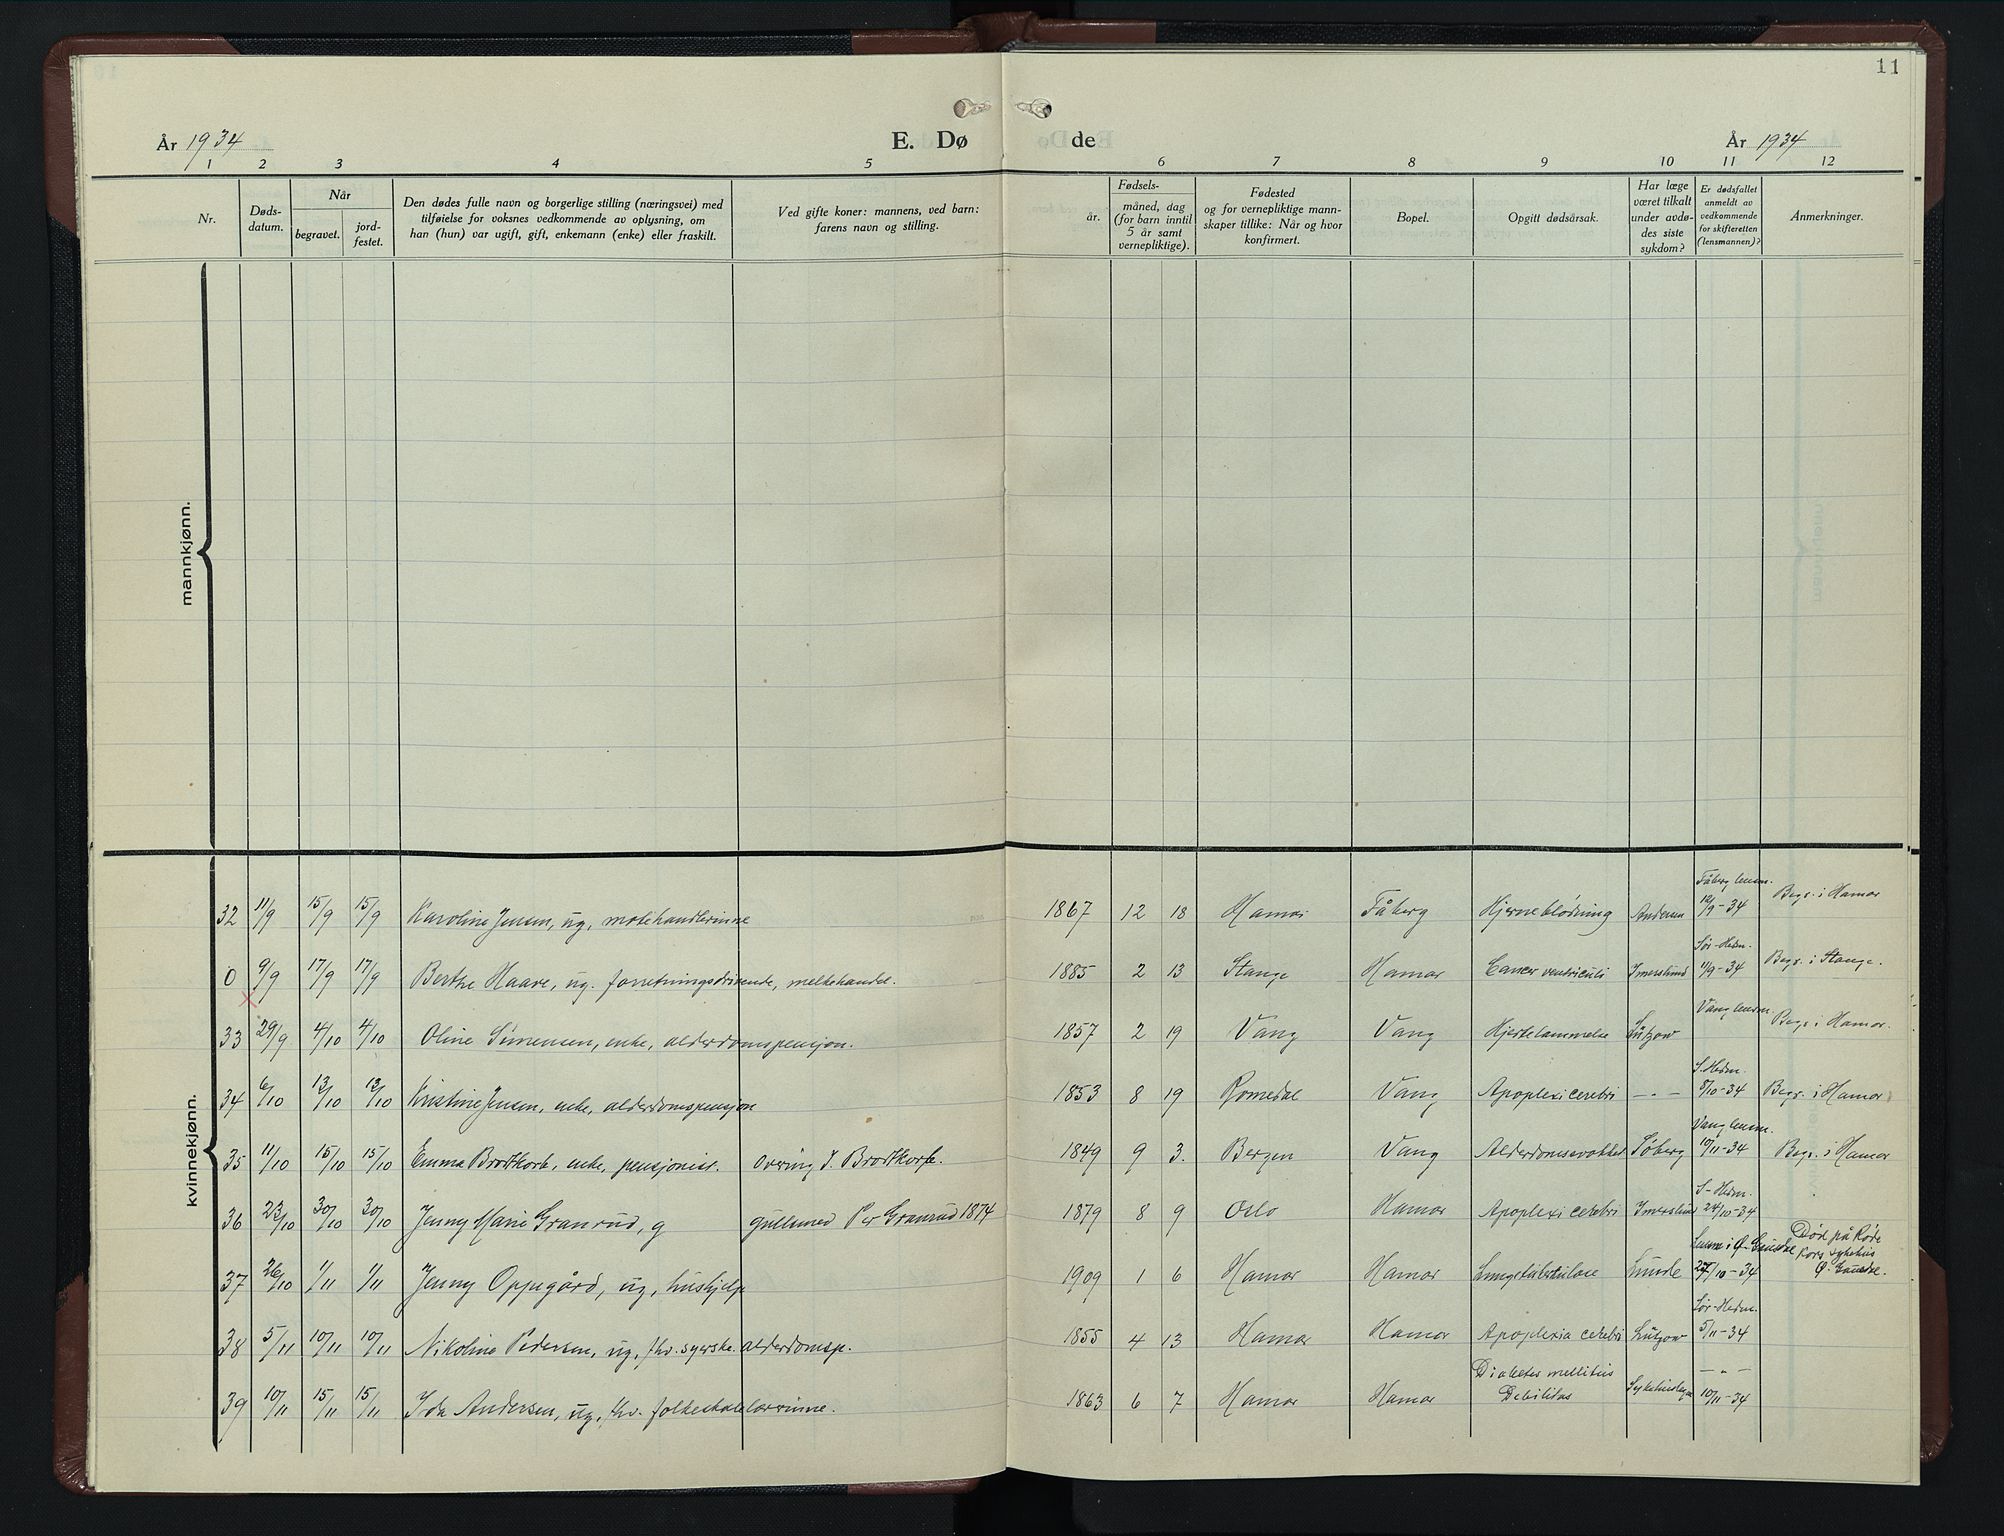 11
År 1934
E. Dø
de
År 1934
1 2 3 4 5 6 7 8 9 10 11 12
Nr.
Døds-
datum.
Når
begravet.
jord-
festet.
Den dødes fulle navn og borgerlige stilling (næringsvei) med
tilføielse for voksnes vedkommende av oplysning, om
han (hun) var ugift, gift, enkemann (enke) eller fraskilt.
Ved gifte koner: mannens, ved barn:
farens navn og stilling.
år.
Fødsels-
måned, dag
(for barn inntil
5 år samt
vernepliktige).
Fødested
og for vernepliktige mann-
skaper tillike: Når og hvor
konfirmert.
Bopel.
Opgitt dødsårsak.
Har læge
været tilkalt
under avdø-
des siste
sykdom?
Er dødsfallet
anmeldt av
vedkommende
for skifteretten
(lensmannen)?
Anmerkninger.
mannkjønn.
kvinnekjønn.
32 11/9 15/9 15/9 Karoline Jensen, ug, motehandlerinne 1867 12 18 Hamar Fåberg Hjerneblødning Andersen Fåberg lensm. 12/9-34 Begr. i Hamar
0 9/9 17/9 17/9 Berthe Haave, ug. forretningsdrivende, melkehandel. 1885 2 13 Stange Hamar Cancer ventriculi Imerslund Sør-Hedm. 11/9-34 Begr. i Stange.
33 29/9 4/10 4/10 Oline Simensen, enke, alderdomspensjon. 1857 2 19 Vang Vang Hjertelammelse Lützow Vang lensm. Begr. i Hamar.
34 6/10 13/10 13/10 Kristine Jensen, enke, alderdomspensjon 1853 8 19 Romedal Vang Apoplexi cerebri - " - S. Hedm. 8/10-34 Begr. i Hamar
35 11/10 15/10 15/10 Emma Brodtkorb, enke, pensjonist. J. Brodtkorb. 1849 9 3. Bergen Vang Alderdomssvakhet Søberg Vang lensm. 10/11-34 Begr. i Hamar
36 23/10 30/10 30/10 Jenny Marie Granrud, g gullsmed Per Granrud 1874 1879 8 9 Oslo Hamar Apoplexi cerebri Imerslund S-Hedm. 24/10-34
37 26/10 1/11 1/11 Jenny Oppegård, ug, hushjelp 1909 1 6 Hamar Hamar Lungetuberkulose Lunde Lensm i Ø. Gausdal 27/10-34 Død på Røde Kors sykehus Ø. Gausdal.
38 5/11 10/11 10/11 Nikoline Pedersen, ug, fhv. syerske. alderdomsp. 1855 4 13 Hamar Hamar Apoplexia cerebri Lützow Sør-Hedm. 5/11-34
39 10/11 15/11 15/11 Ida Andersen, ug, fhv. folkeskolelærerinne. 1863 6 7 Hamar Hamar Diabetes mellitus Debilitas Sykehuslegen - " - 10/11-34